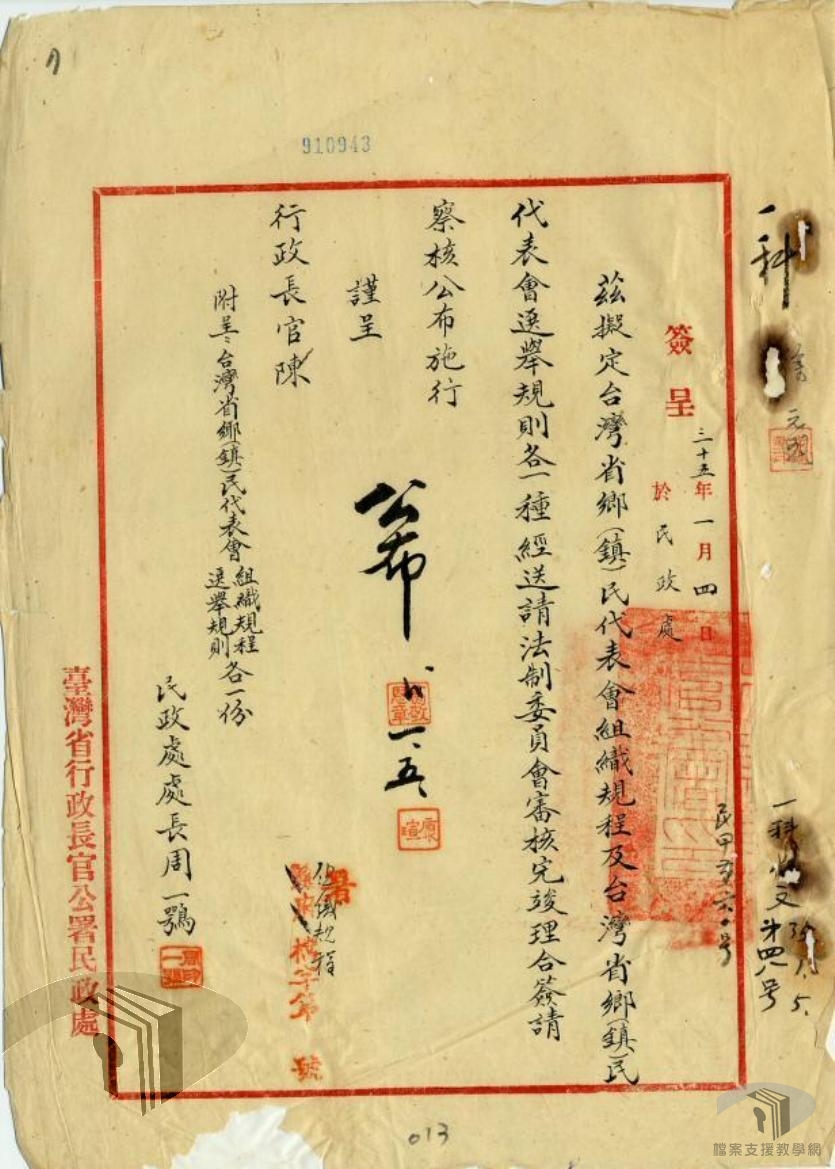 910943
一科
簽呈 三十五年一月四日
於民政處
茲擬定台灣省鄉(鎮)民代表會組織規程及台灣省鄉(鎮)民
代表會選舉規則各一種經送請法制委員會審核完竣理合簽請
察核公布施行
謹呈
行政長官陳
附呈：台灣省鄉(鎮)民代表會組織規程
選舉規則各一份
公布
一、五、
民政處處長周一鶚
組織規程
署
字第 號
臺灣省行政長官公署民政處
一科收文 35.1.5.
第四八号
013
檔案支援教學網